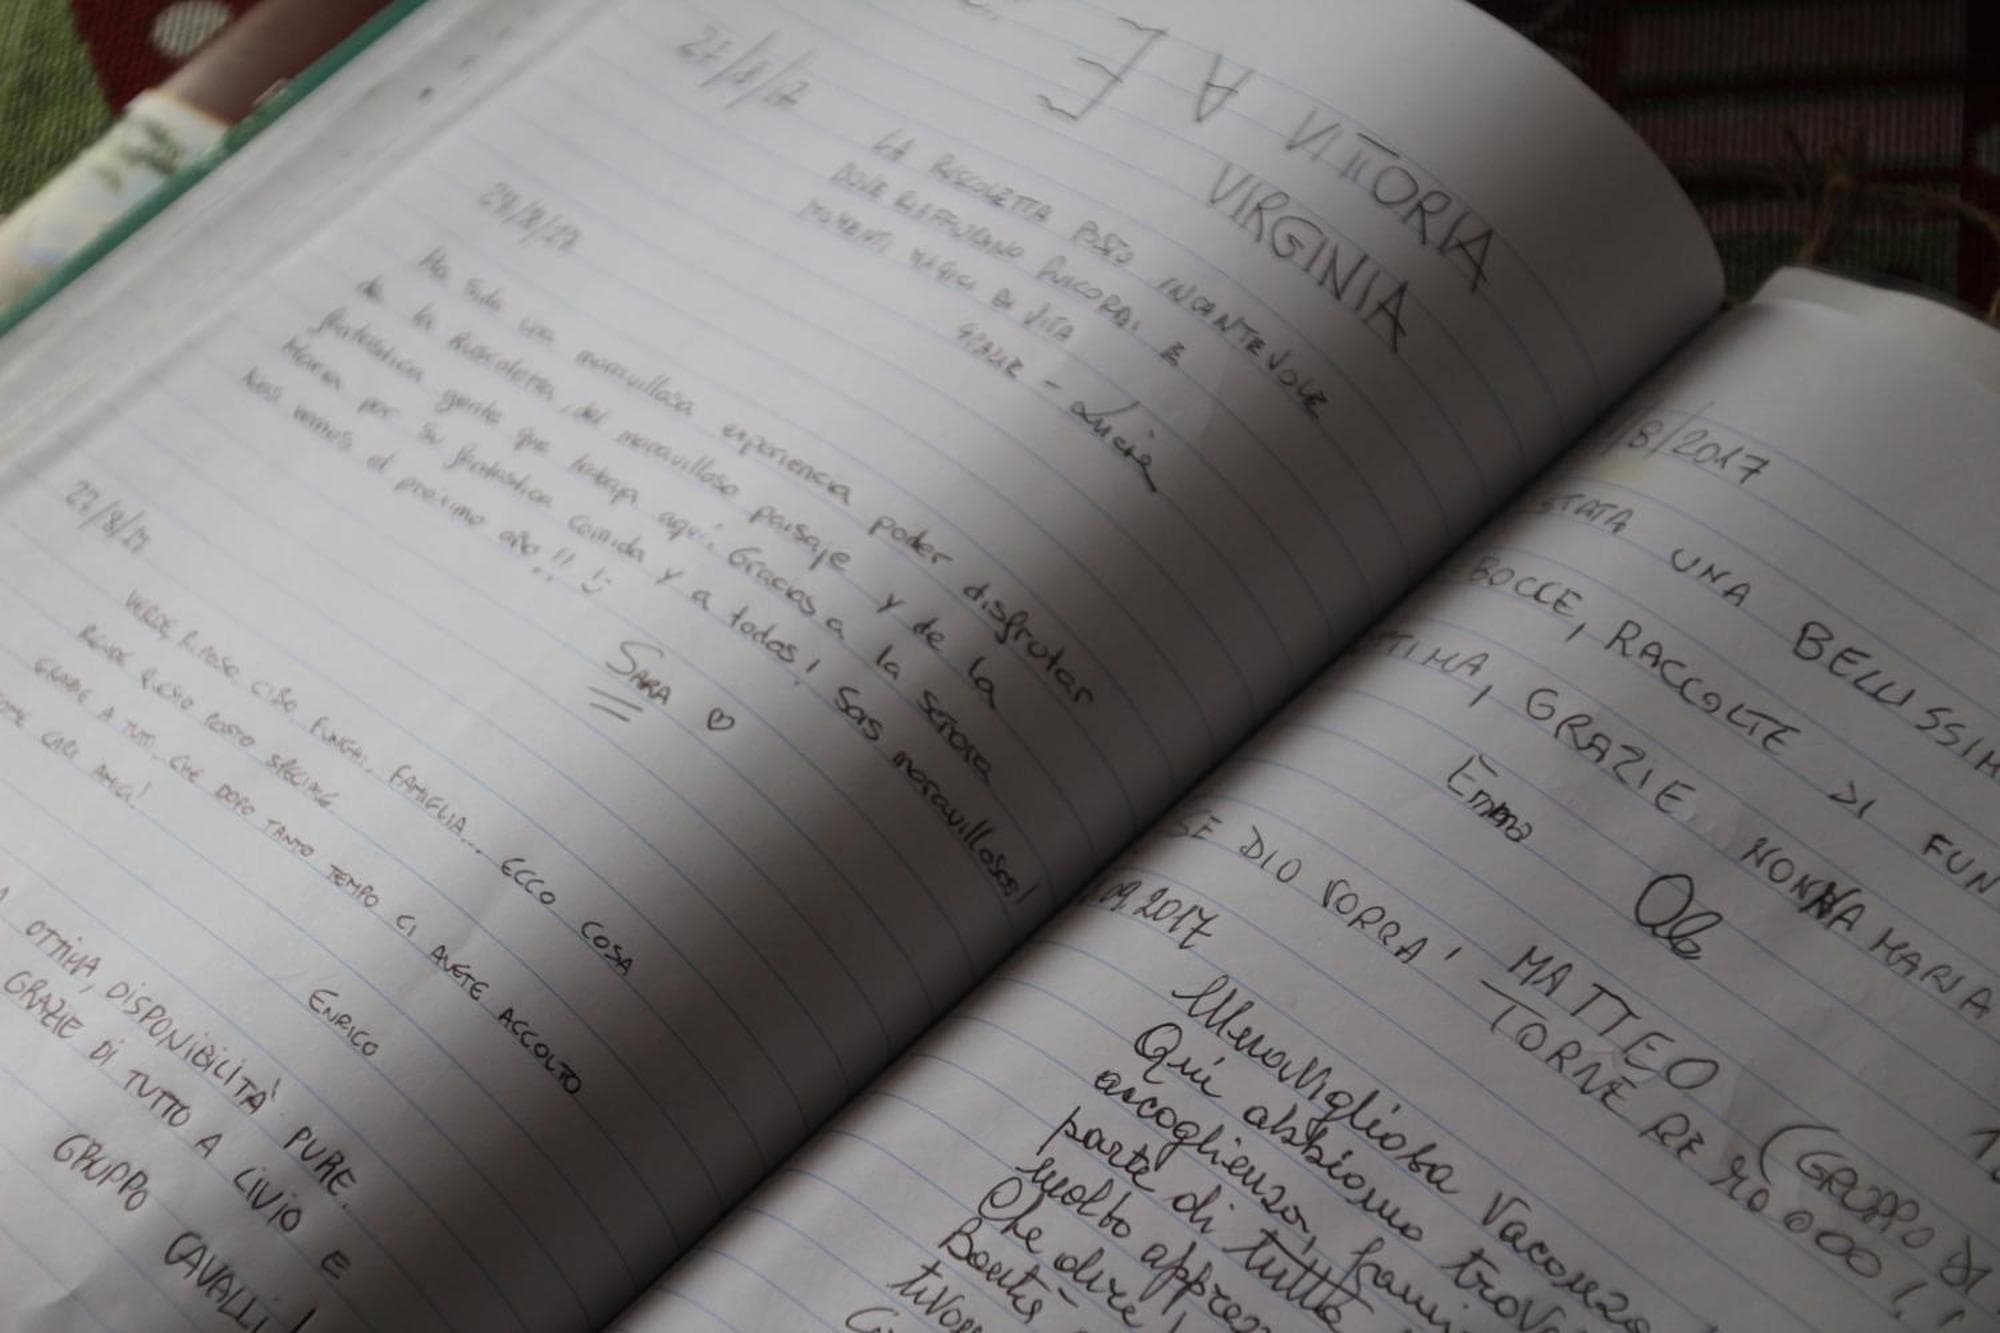 VITTORIA
VIRGINIA
LA RUSCOLETTA POSTO INCANTEVOLE
DOVE RIAFFIORANO RICORDI E
MOMENTI MAGICI DI VITA
GRAZIE - Lucia
27/8/17
Ha sido una maravillosa experiencia poder disfrutar
de la Ruscoletta, del maravilloso paisaje y de la
fantástica gente que trabaja aquí. Gracias a la señora
Maria por su fantástica comida y a todos! Sois maravillosos!
Nos vemos el proximo año!!
SARA
27/8/17
VERDE RIPOSO CIBO FUNGHI FAMIGLIA... ECCO COSA
RENDE QUESTO POSTO SPECIALE
GRAZIE A TUTTI CHE DOPO TANTO TEMPO CI AVETE ACCOLTO
CARI AMICI!
ENRICO
OTTIMA, DISPONIBILITA' PURE.
GRAZIE DI TUTTO A LIVIO E
GRUPPO CAVALLI!
/8/2017
STATA UNA BELLISSIM
BOCCE, RACCOLTE DI FUN
TIMA, GRAZIE NONNA MARIA
Emma
MATTEO (GRUPPO DI
SE DIO VORRA' TORNEREMO
.09.2017
Meravigliosa Vacanza
Qui abbiamo trova
accoglienza, fami
parte di tutte
molto apprez
Che dire
Bontà